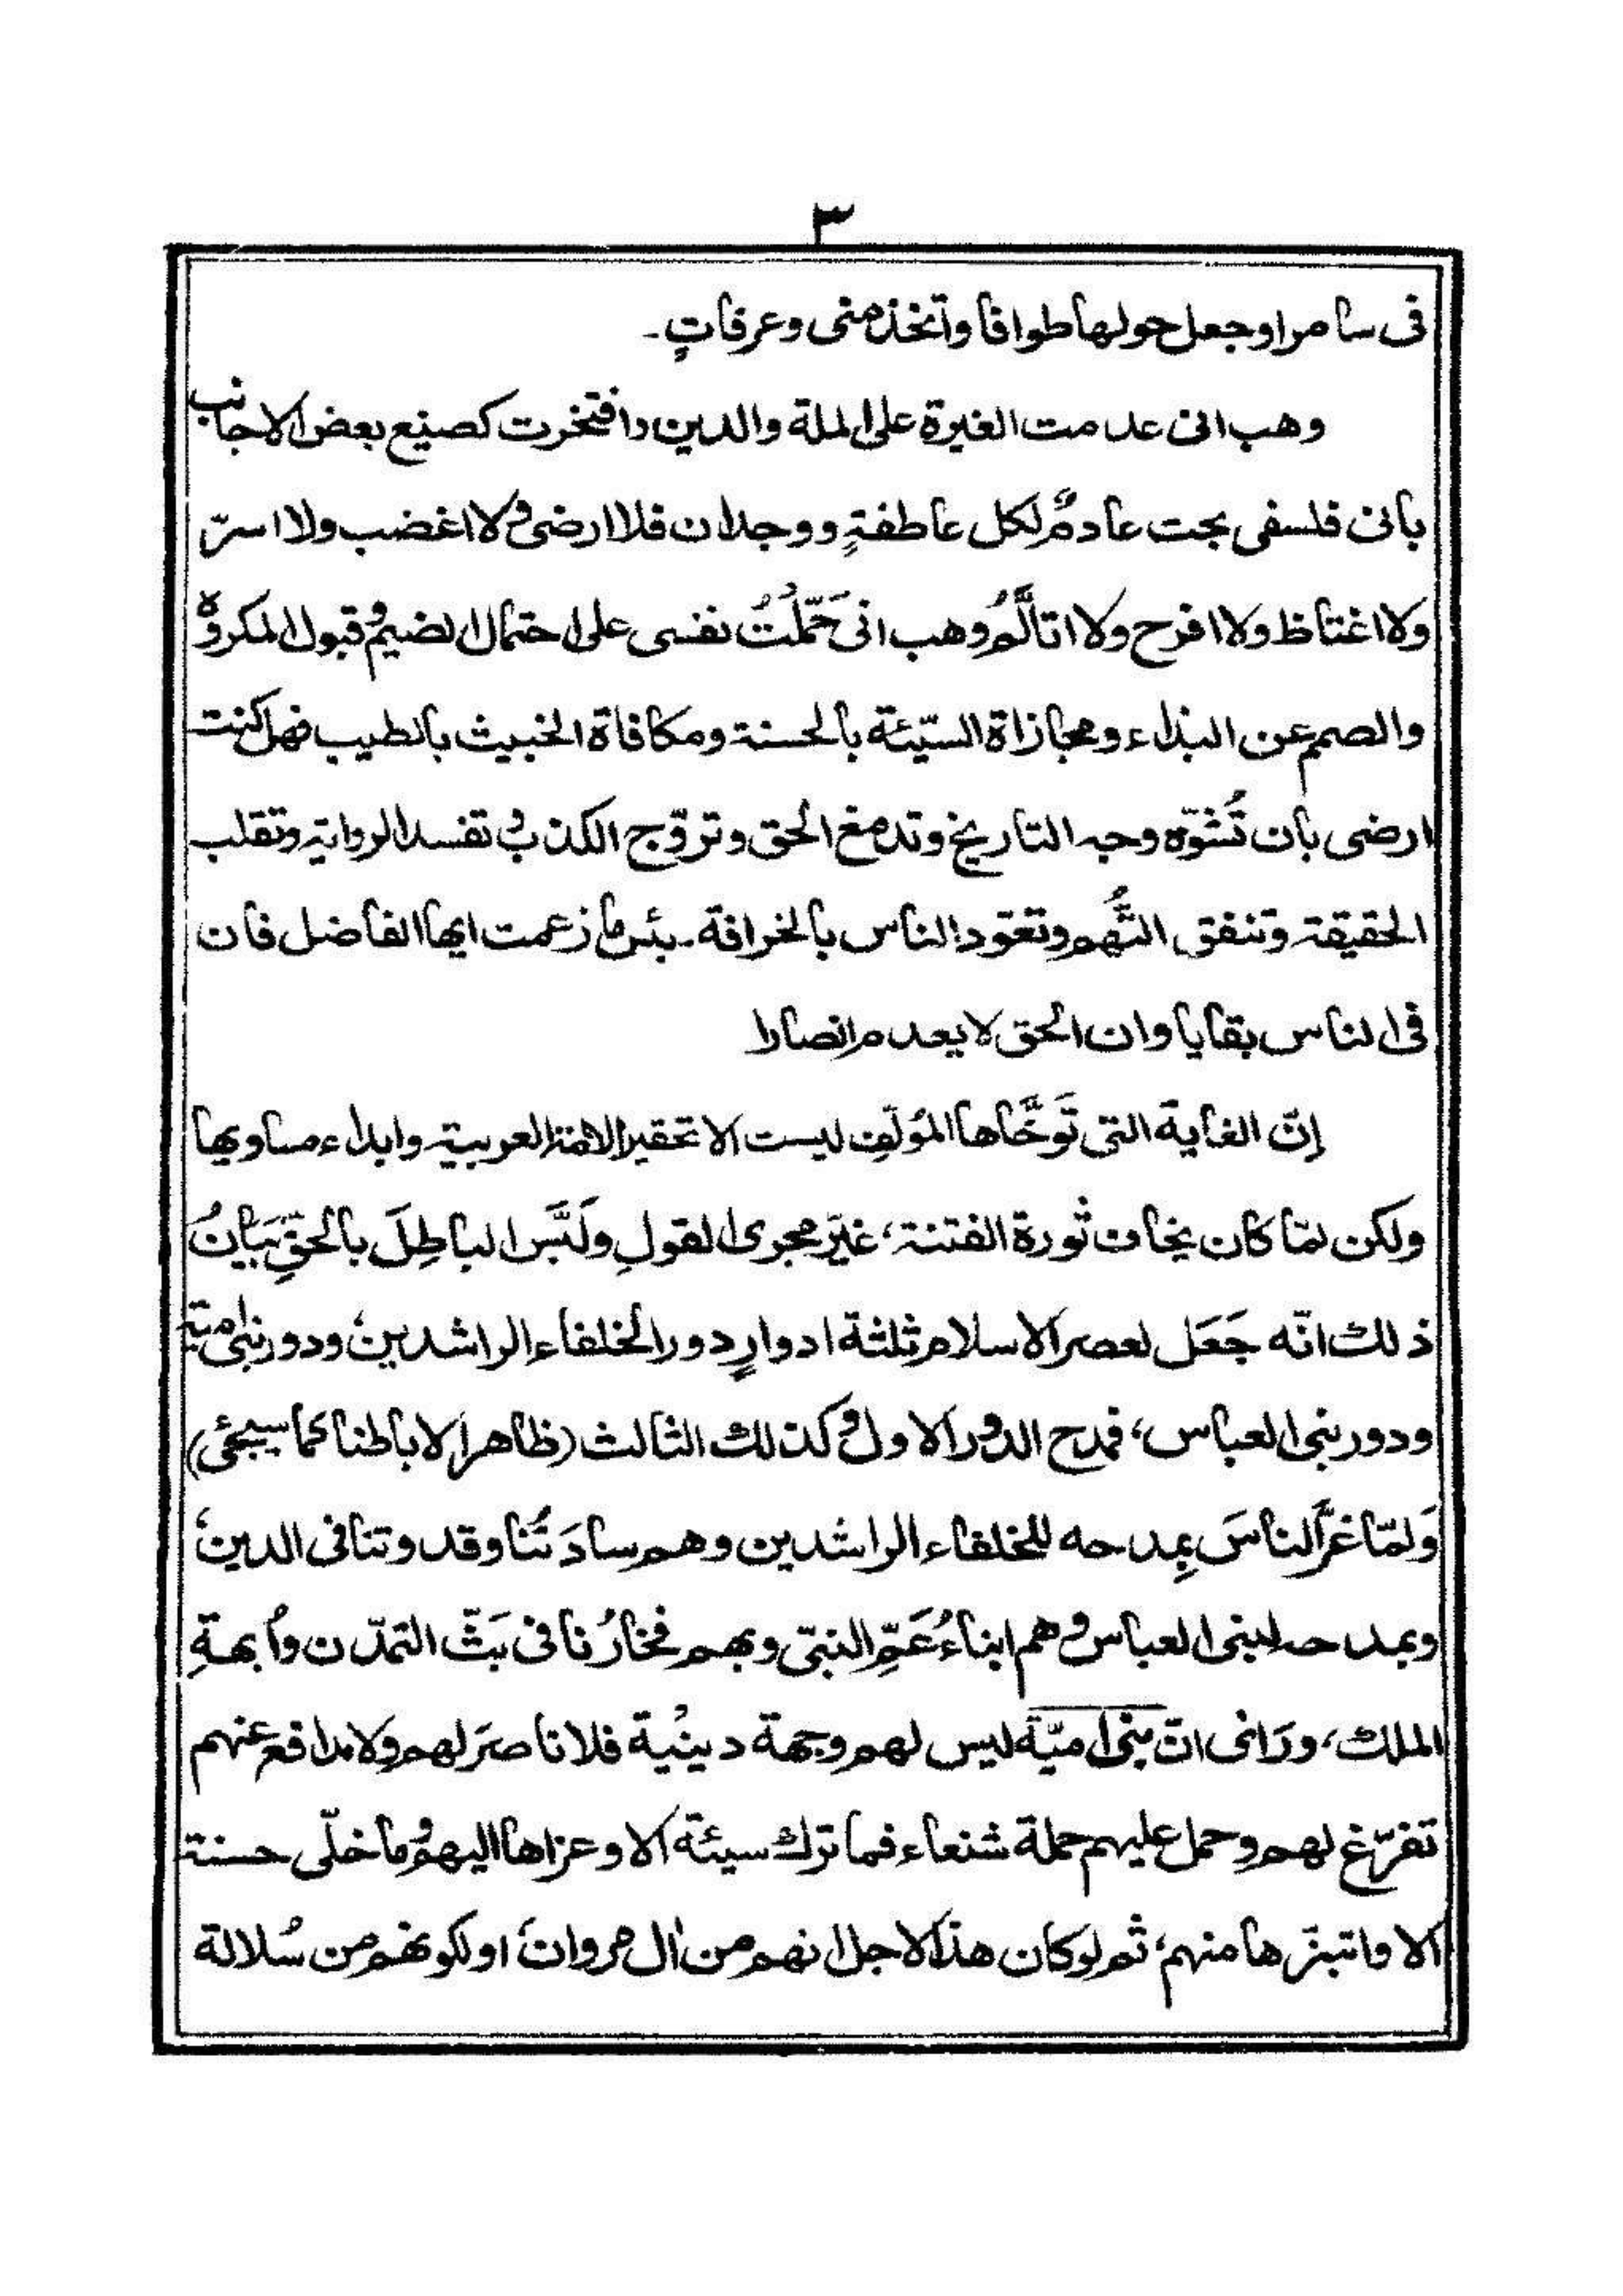 ٣
فى سامرا وجعل حولها طوافا واتخذ منى وعرفاتٍ۔
وهب انى عدمت الغيرة على الملة والدين وافتخرت كصنيع بعض الاجانب
بانى فلسفى بحت عادمٌ لكل عاطفةٍ ووجدان فلا ارضى ولا اغضب ولا اسرّ
ولا اغتاظ ولا افرح ولا اتألَّمُ وهب انى حَمَّلْتُ نفسى على احتمال الضيم وقبول المكروه
والصمم عن البذاء ومجازاة السيّئة بالحسنة ومكافاة الخبيث بالطيب فهل كنت
ارضى بان تُشوّه وجه التاريخ وتدمغ الحق وتروّج الكذب وتفسد الرواية وتقلب
الحقيقة وتنفق التُّهم وتعوّد الناس بالخرافة۔ بئس ما زعمت ايها الفاضل فان
فى الناس بقايا وان الحق لا يعدم انصارا
إنّ الغاية التى تَوَخَّاها المؤلّف ليست الا تحقير الامة العربية وابداء مساويها
ولكن لمّا كان يخاف ثورة الفتنة، غيّر مجرى القولِ ولَبَّس الباطِلَ بالحقِّ بَيَانُ
ذلك انّه جَعَل لعصر الاسلام ثلثة ادوارٍ دور الخلفاء الراشدين، ودور بنى امية
ودور بنى العباس، فمدح الدور الاول وكذلك الثالث (ظاهرا لا باطنا كما سيجئ)
وَلمّا غرَّ الناسَ بِمدحه للخلفاء الراشدين وهم سادَتُنا وقدوتنا فى الدين،
وبمدحه لبنى العباس وهم ابناءُ عَمِّ النبىّ وبهم فخارُنا فى بَثّ التمدّن واُبهةِ
الملك، ورَاٰى انّ بنى اميّة ليس لهم وجهة دينية فلا ناصرَ لهم ولا مدافع عنهم
تفرّغ لهم وحمل عليهم حملة شنعاء فما ترك سيئة الا وعزاها اليهم وما خلّى حسنة
الا وابتزّها منهم، ثم لو كان هذا لاجل انهم من اٰل مروان، او لكونهم من سُلالة